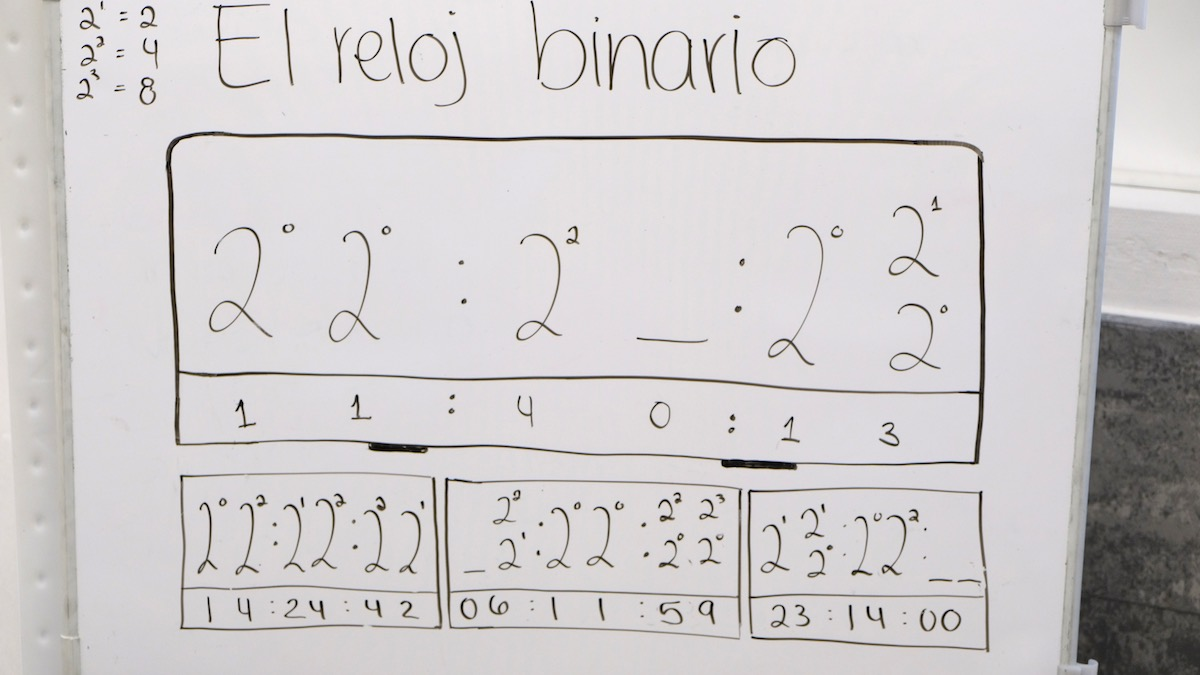 2¹ = 2
2² = 4
2³ = 8
El reloj binario
2⁰ 2⁰ : 2² _ : 2⁰ 2¹
2⁰
1 1 : 4 0 : 1 3
2⁰ 2² : 2¹ 2² : 2² 2¹
1 4 : 24 : 42
2²
_ 2¹ : 2⁰ 2⁰ : 2² 2³
2⁰ 2⁰
06 : 1 1 : 59
2¹ 2¹ : 2⁰ 2² : _ _
2⁰
23 : 14 : 00